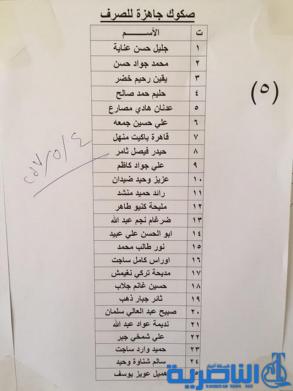 صكوك جاهزة للصرف
ت الأســـم
١ جليل حسن عناية
٢ محمد جواد حسن
٣ يقين رحيم خضر
٤ حنيم حمد صالح
٥ عدنان هادي مصارع
٦ علي حسين جمعه
٧ قاهرة باكيت منهل
٨ حيدر فيصل ثامر
٩ علي جواد كاظم
١٠ عزيز وحيد ضيدان
١١ رائد حميد منشد
١٢ مليحة كنيو طاهر
١٣ ضرغام نجم عبد الله
١٤ ابو الحسن علي عبيد
١٥ نور طالب محمد
١٦ اوراس كامل ساجت
١٧ مديحة تركي نغيمش
١٨ حسين غانم جلاب
١٩ ثائر جبار ذهب
٢٠ صبيح عبد العالي سلمان
٢١ نديمة عواد عبد الله
٢٢ علي شمخي جبر
٢٣ حميد وارد ساجت
٢٤ سالم شناوة وحيد
عويز يوسف
(٥)
الناصرية